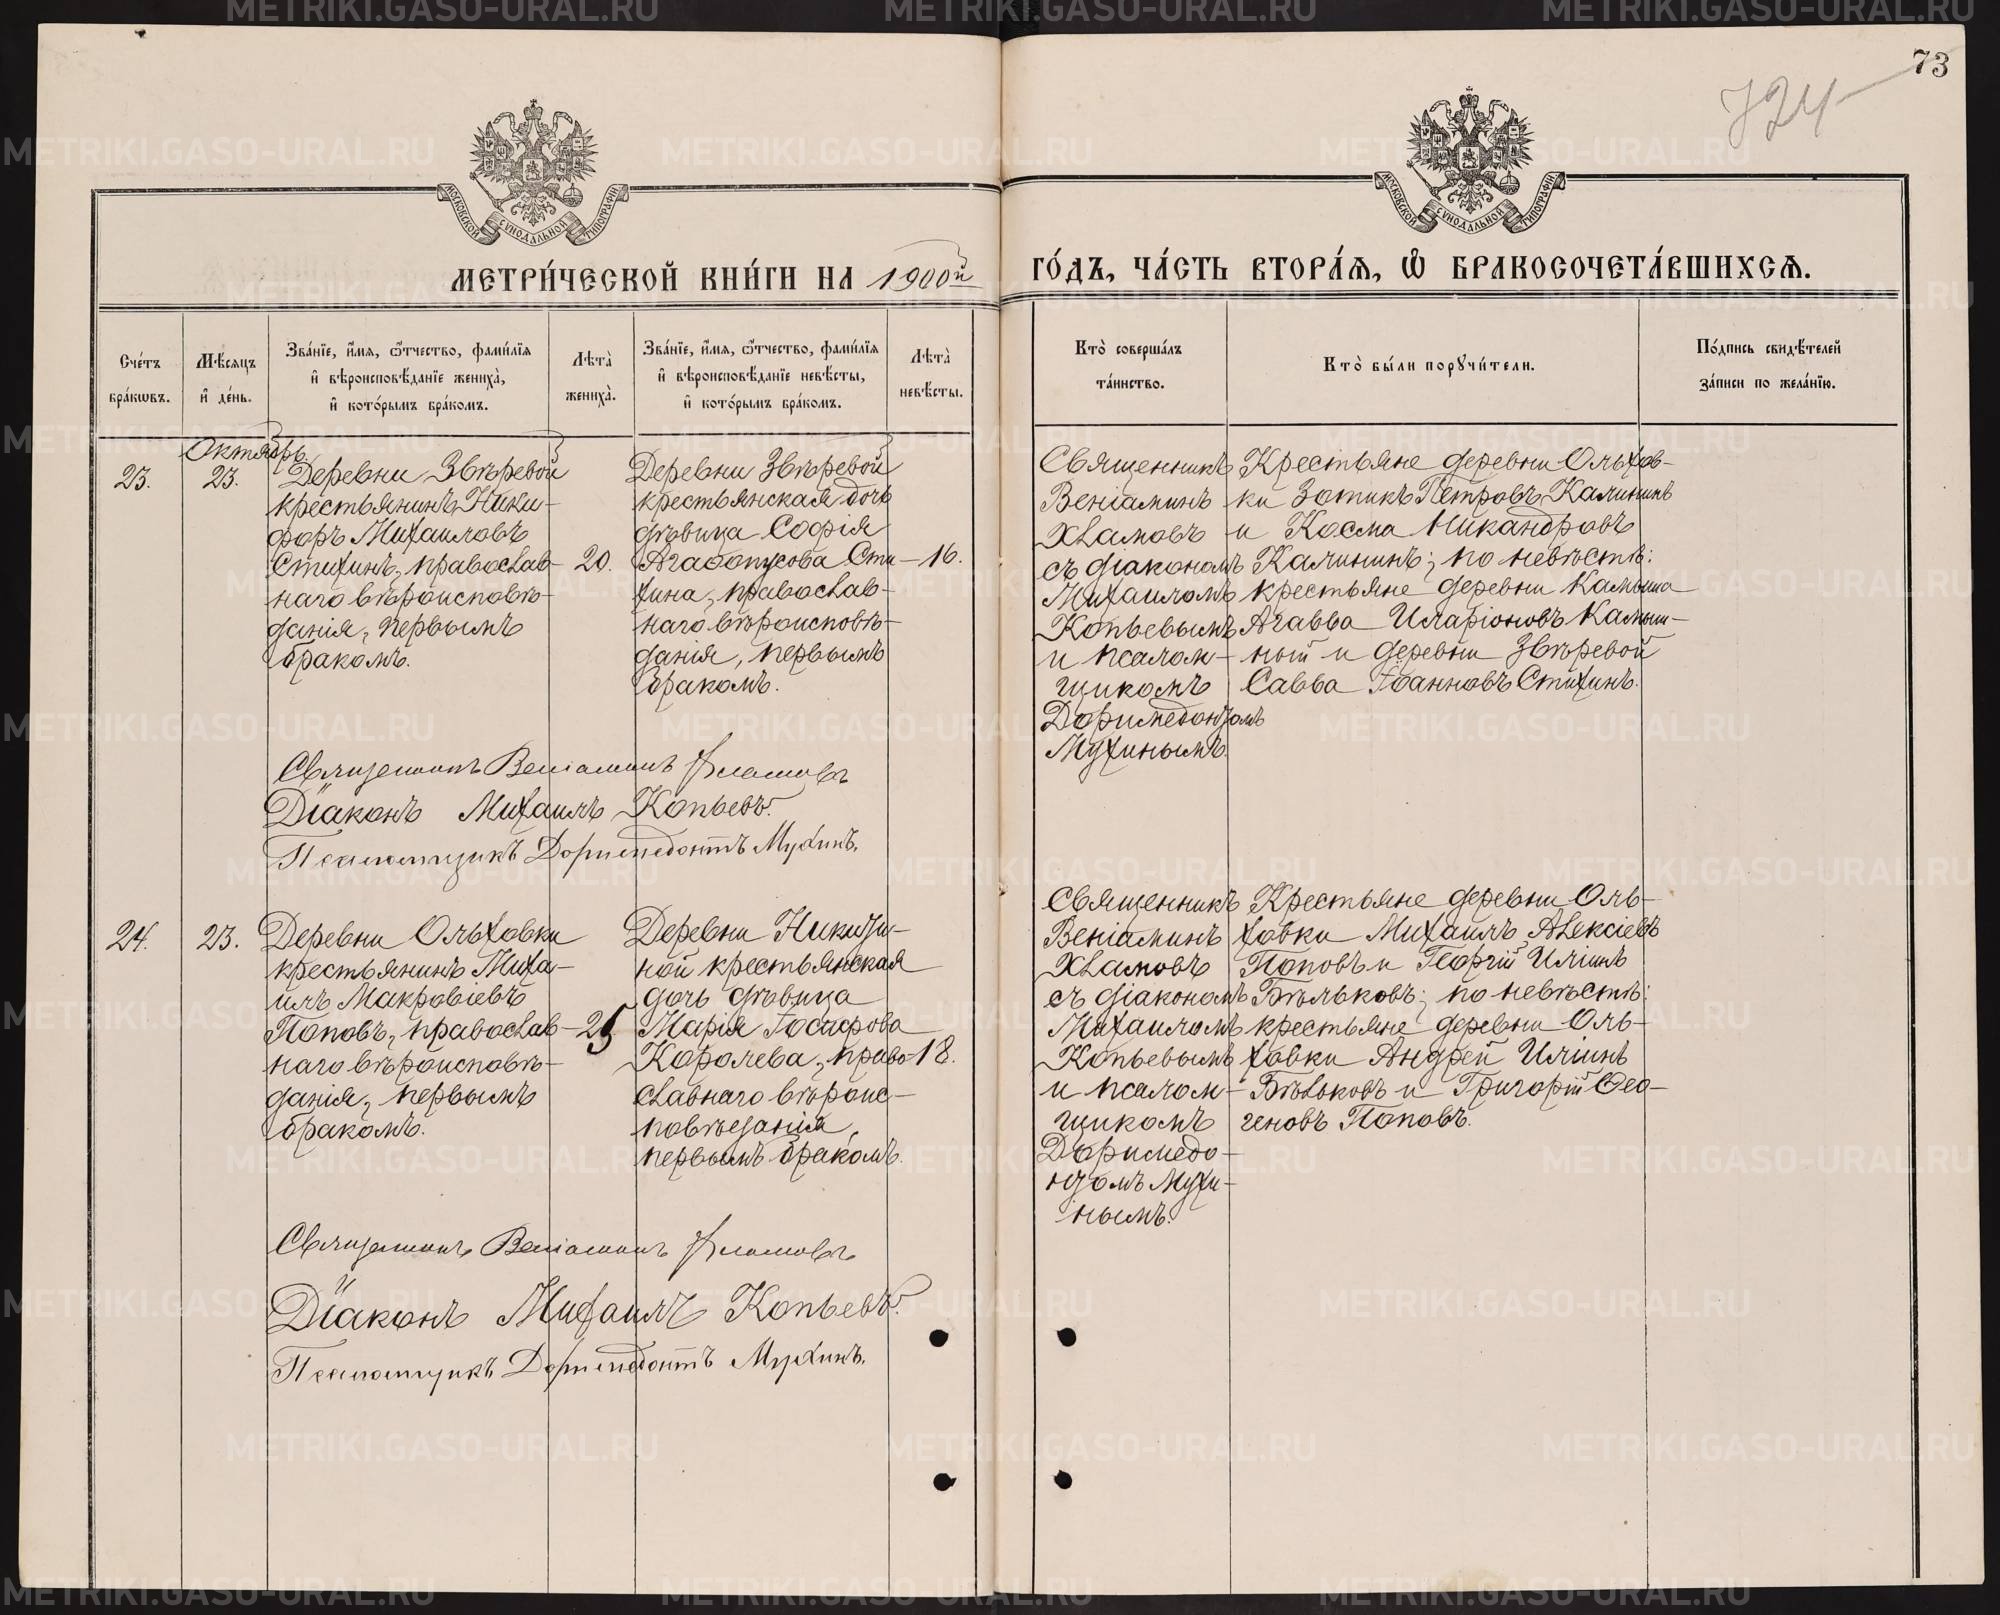 73
724
МОСКОВСКОЙ СѴНОДАЛЬНОЙ ТИПОГРАФІИ
МОСКОВСКОЙ СѴНОДАЛЬНОЙ ТИПОГРАФІИ
МЕТРИ́ЧЕСКОЙ КНИ́ГИ НА 1900й ГО́ДЪ, ЧА́СТЬ ВТОРА́Ѧ, Ѽ БРАКОСОЧЕТА́ВШИХСѦ.
Сче́тъ бра́кѡвъ.
Мѣ́сѧцъ и҆ де́нь.
Зва́нїе, и҆́мѧ, ѻ҆́тчество, фами́лїѧ и҆ вѣроисповѣ́данїе жениха̀, и҆ кото́рымъ бра́комъ.
Лѣта̀ жениха̀.
Зва́нїе, и҆́мѧ, ѻ҆́тчество, фами́лїѧ и҆ вѣроисповѣ́данїе невѣ́сты, и҆ кото́рымъ бра́комъ.
Лѣта̀ невѣ́сты.
Кто̀ соверша́лъ та́инство.
Кто̀ бы́ли порꙋчи́тели.
По́дпись свидѣ́телей за́писи по жела́нїю.
Октябрь.
23.
23.
Деревни Звѣревой
крестьянинъ Ники-
форъ Михаиловъ
Стихинъ, православ-
наго вѣроисповѣ-
данія, первымъ
бракомъ.
20.
Деревни Звѣревой
крестьянская дочь
дѣвица Софія
Агафопусова Сти-
хина, православ-
наго вѣроисповѣ-
данія, первымъ
бракомъ.
16.
Священникъ
Веніаминъ
Хламовъ
съ діакономъ
Михаиломъ
Копьевымъ
и псалом-
щикомъ
Доримедонтомъ
Мухинымъ.
Крестьяне деревни Ольхов-
ки Зотикъ Петровъ Калининъ
и Косма Никандровъ
Калининъ; по невѣстѣ:
крестьяне деревни Камыша
Агавва Иларіоновъ Камыш-
ный и деревни Звѣревой
Савва Іоанновъ Стихинъ.
Священникъ Веніаминъ Хламовъ
Діаконъ Михаилъ Копьевъ.
Псаломщикъ Доримедонтъ Мухинъ.
24.
23.
Деревни Ольховки
крестьянинъ Миха-
илъ Макровіевъ
Поповъ, православ-
наго вѣроисповѣ-
данія, первымъ
бракомъ.
25
Деревни Никити-
ной крестьянская
дочь дѣвица
Марія Іосифова
Королева, право-
славнаго вѣроис-
повѣданія,
первымъ бракомъ.
18.
Священникъ
Веніаминъ
Хламовъ
съ діакономъ
Михаиломъ
Копьевымъ
и псалом-
щикомъ
Доримедо-
нтомъ Мухи-
нымъ.
Крестьяне деревни Оль-
ховки Михаилъ Алексіевъ
Поповъ и Георгій Иліинъ
Бѣльковъ; по невѣстѣ:
крестьяне деревни Оль-
ховки Андрей Иліинъ
Бѣльковъ и Григорій Ѳео-
геновъ Поповъ.
Священникъ Веніаминъ Хламовъ
Діаконъ Михаилъ Копьевъ.
Псаломщикъ Доримедонтъ Мухинъ.
METRIKI.GASO-URAL.RU